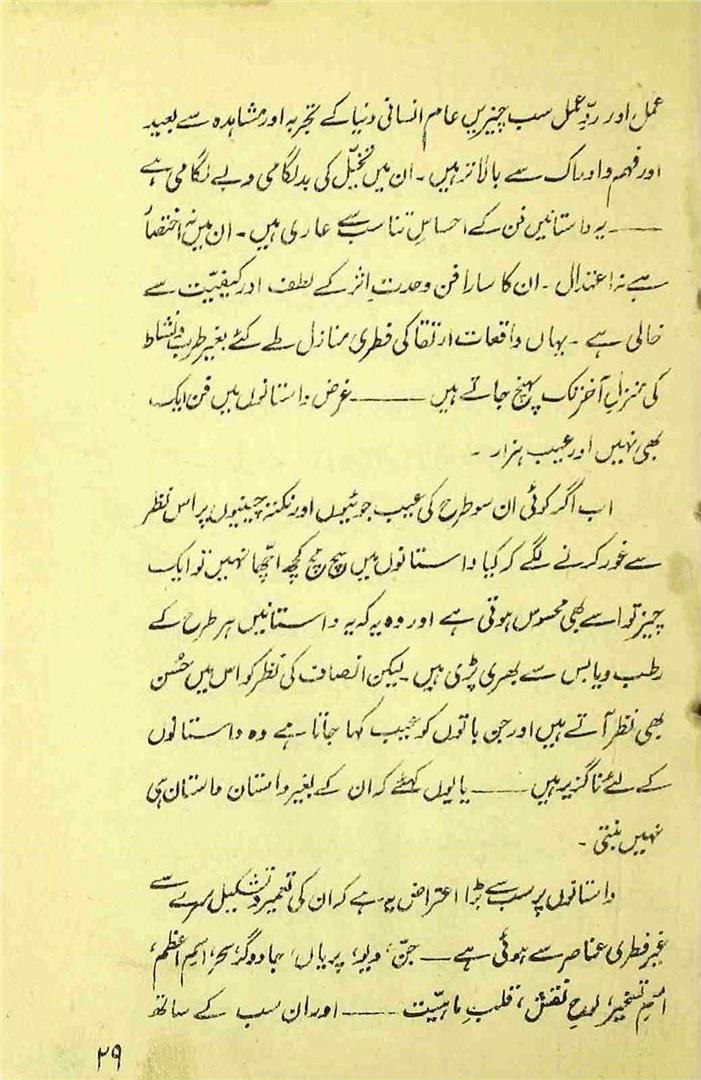 عمل اور ردِّ عمل سب چیزیں عام انسانی دنیا کے تجربہ اور مشاہدہ سے بعید
اور فہم و ادراک سے بالاتر ہیں ۔ ان میں تخیّل کی بدلگامی و بے لگامی ہے
——۔ یہ داستانیں فن کے احساسِ تناسب سے عاری ہیں ۔ ان میں نہ اختصار
ہے نہ اعتدال ۔ ان کا سارا فن وحدتِ اثر کے لطف اور کیفیّت سے
خالی ہے ۔ یہاں واقعات ارتقا کی فطری منازل طے کئے بغیر طرب و نشاط
کی منزلِ آخر تک پہنچ جاتے ہیں ——— غرض داستانوں میں فن ایک
بھی نہیں اور عیب ہزار ۔
اب اگر کوئی ان سو طرح کی عیب جوئیوں اور نکتہ چینیوں پر اس نظر
سے غور کرنے لگے کہ کیا داستانوں میں سچ مچ کچھ اچھا نہیں تو ایک
چیز تو اسے بھی محسوس ہوتی ہے اور وہ یہ کہ یہ داستانیں ہر طرح کے
رطب و یابس سے بھری پڑی ہیں لیکن انصاف کی نظر کو اس میں حُسن
بھی نظر آتے ہیں اور جن باتوں کو عیب کہا جاتا ہے وہ داستانوں
کے لئے ناگزیر ہیں —— یا یوں کہئے کہ ان کے بغیر داستان داستان ہی
نہیں بنتی ۔
داستانوں پر سب سے بڑا اعتراض یہ ہے کہ ان کی تعمیر و تشکیل سرے سے
غیر فطری عناصر سے ہوئی ہے — جن، دیو، پریاں، جادوگر، سحر، اسمِ اعظم،
اسمِ تسخیر، لوحِ نقش، قلبِ ماہیّت —— اور ان سب کے ساتھ
۲۹